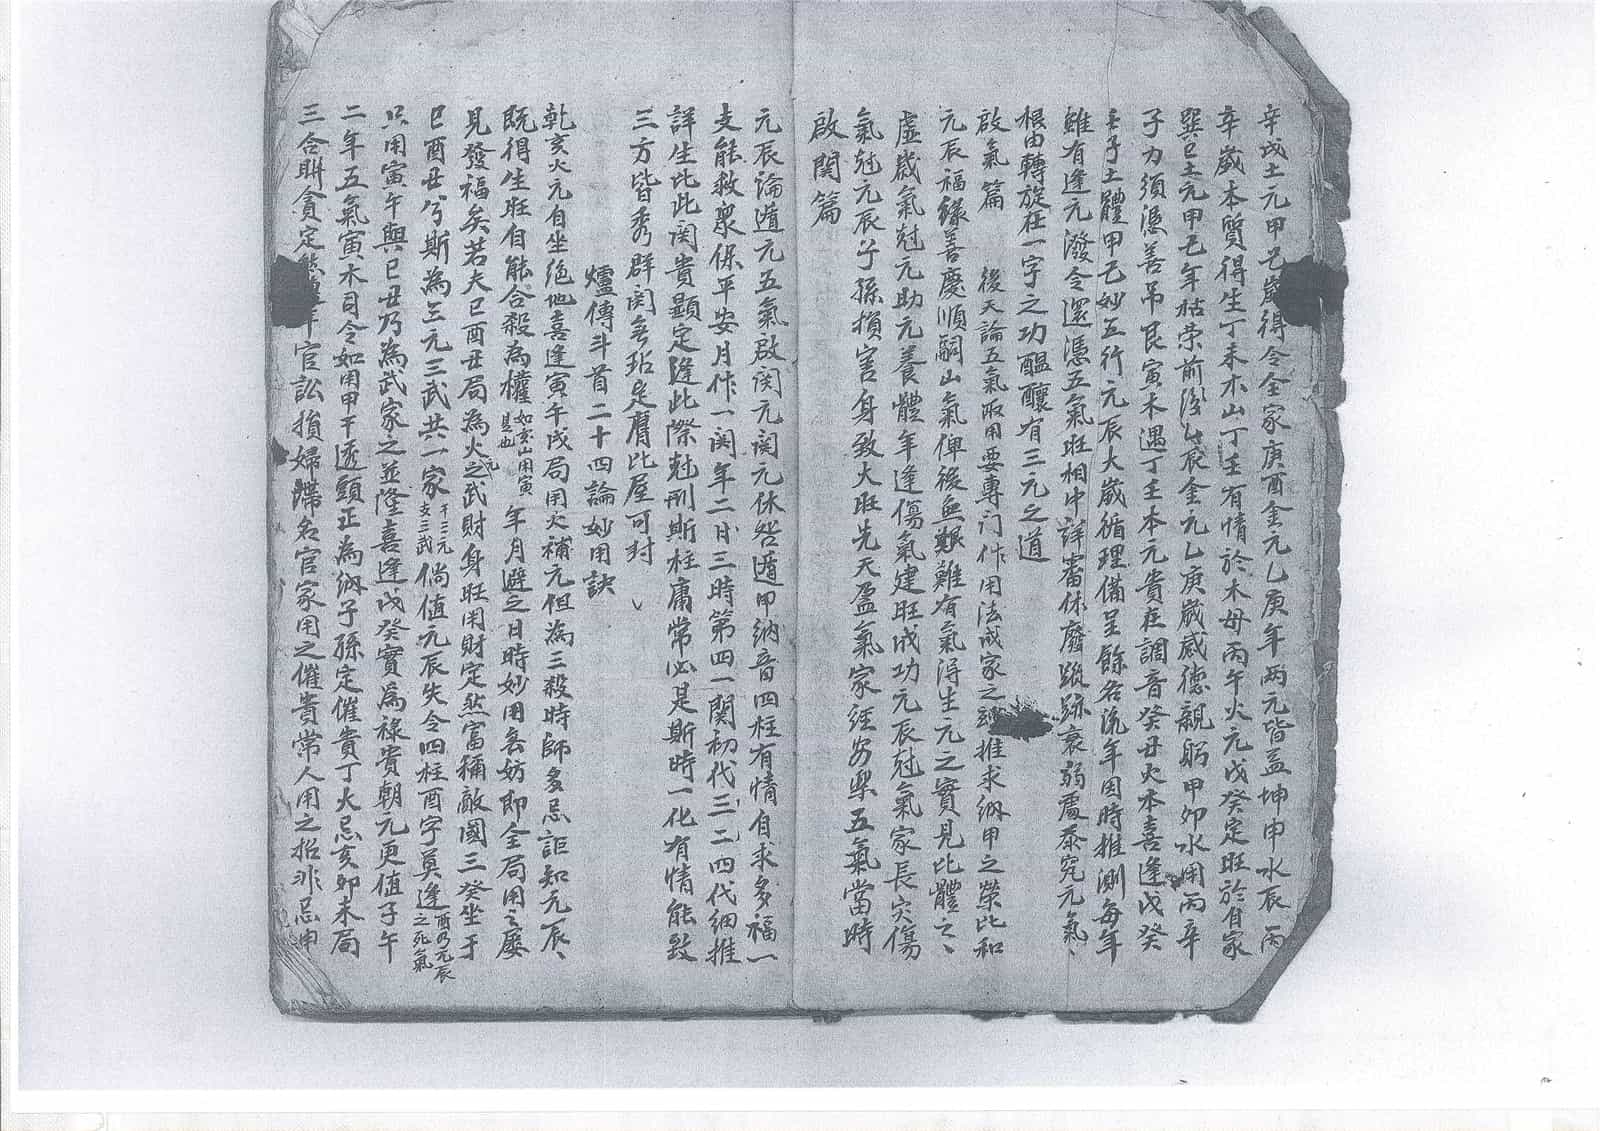 辛戌土元甲己歲得令全家庚酉金元乙庚年兩元皆益坤申水辰丙
辛歲本質得生丁未木山丁壬有情於木母丙午火元戊癸定旺於自家
巽巳土元甲己年枯荣前後乙辰金元乙庚歲感德親躬甲卯水用丙辛
子力須憑善吊艮寅木遇丁壬本元貴在調音癸丑火本喜逢戊癸
壬子土體甲己妙五行元辰大歲循理偹呈餘各流年因時推測每年
雖有逢元潑令還憑五氣旺相中詳審休廢蹤跡衰弱處叅究元氣、
根由轉旋在一字之功醞釀有三元之道
啟氣篇　後天論五氣取用要專門作用法成家之 推求納甲之榮比和
元辰福祿善慶順嗣山氣俾後無艱難有氣得生元之實見比體之、
虛歲氣尅元助元養體年逢傷氣建旺成功元辰尅氣家長灾傷
氣尅元辰子孫損害身致大旺先天盈氣家征安樂五氣當時
啟関篇
元辰論遁元五氣啟関元関元休咎遁甲納音四柱有情自求多福一
支能救衆保平安月作一関年二日三時第四一関初代三二四代細推
詳生比此関貴顯定逢此際尅刑斯柱庸常必是斯時一化有情能致
三方皆秀群関無玷足膺比屋可封
爐傳斗首二十四論妙用訣
乾亥火元自坐絕地喜逢寅午戌局用火補元但為三殺時師多忌詎知元辰、
既得生旺自能合殺為權如亥山用寅是也年月避之日時妙用無妨即全局用之屢
見發福矣若夫巳酉丑局為火元之武財身旺用財定然富稱敵國三癸坐于
巳酉丑兮斯為三元三武共一家干三元支三武倘值元辰失令四柱酉字莫逢酉乃元辰之死氣
只用寅午與巳丑乃為武家之並隆喜逢戊癸實為祿貴朝元更值子午
二年五氣寅木司令如用甲干透頭正為納子孫定催貴丁火忌亥卯未局
三合聯貪定 年官訟損婦諜名官家用之催貴常人用之招非忌申